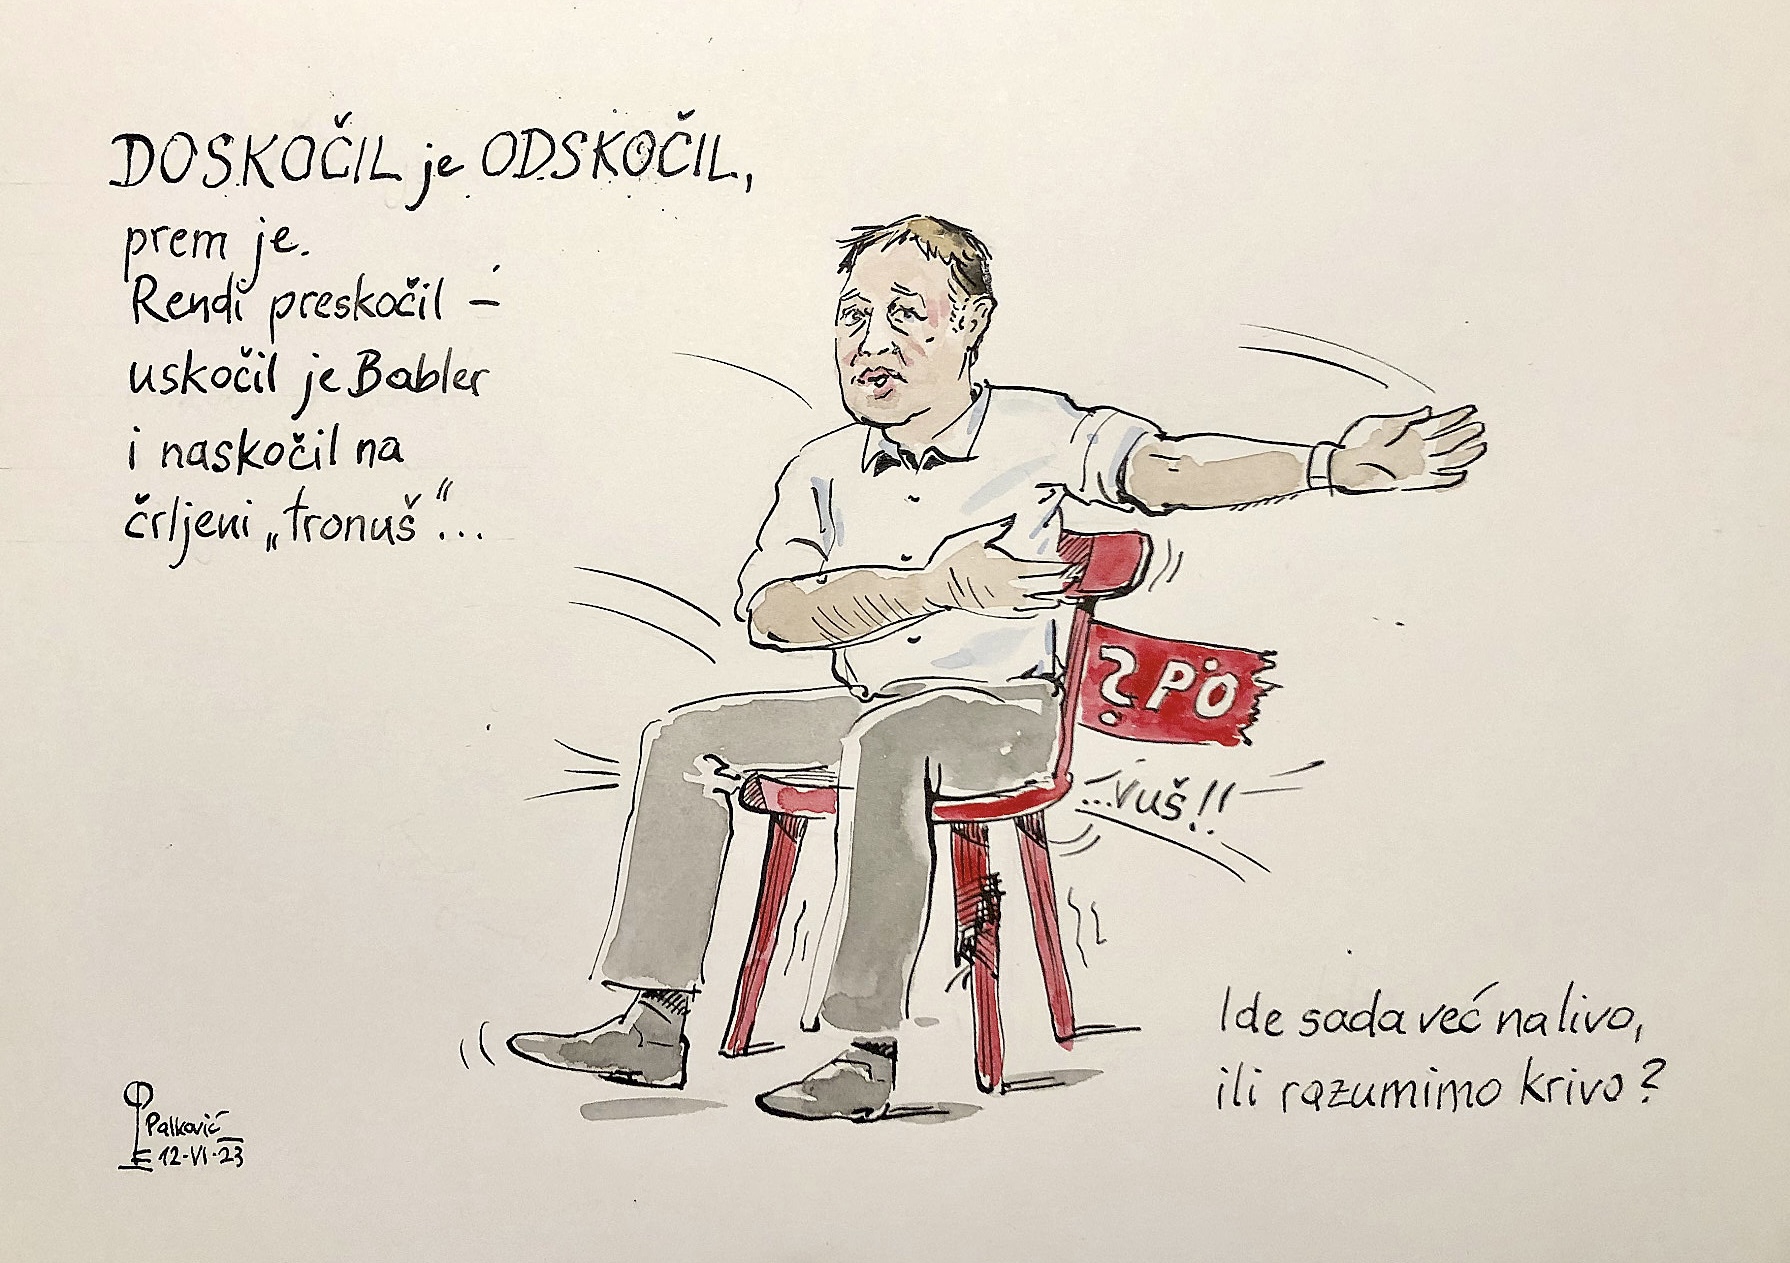 DOSKOČIL je ODSKOČIL,
prem je.
Rendi preskočil –
uskočil je Babler
i naskočil na
črljeni „tronuš“...
SPÖ
...vuš!!
Ide sada već na livo,
ili razumimo krivo?
Palković
12-VI-23